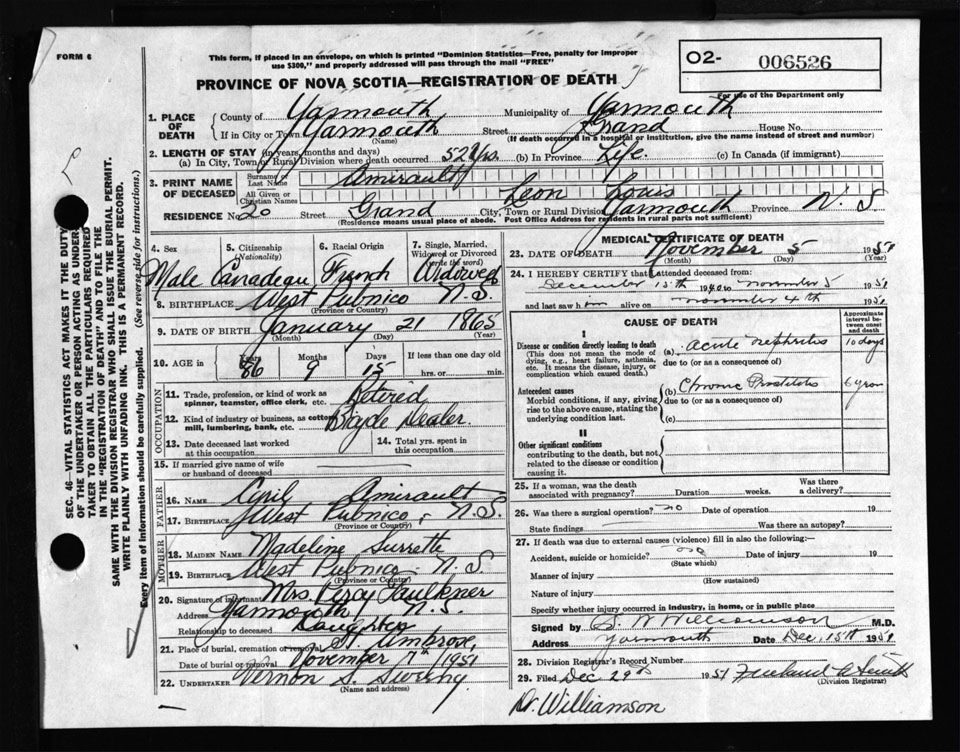 FORM 6
This form, if placed in an envelope, on which is printed "Dominion Statistics—Free, penalty for improper
use $300," and properly addressed will pass through the mail "FREE"
PROVINCE OF NOVA SCOTIA—REGISTRATION OF DEATH
O2- 006526
For use of the Department only
1. PLACE OF DEATH
County of Yarmouth Municipality of Yarmouth
If in City or Town Yarmouth Street Grand House No.
(Name) (If death occurred in a hospital or institution, give the name instead of street and number)
2. LENGTH OF STAY (in years, months and days)
(a) In City, Town or Rural Division where death occurred 52 Yrs. (b) In Province Life. (c) In Canada (if immigrant)
3. PRINT NAME OF DECEASED
Surname or Last Name Amirault
All Given or Christian Names Leon Louis
RESIDENCE No. 20 Street Grand City, Town or Rural Division Yarmouth Province N. S.
(Residence means usual place of abode. Post Office Address for residents in rural parts not sufficient)
4. Sex
Male
5. Citizenship (Nationality)
Canadean
6. Racial Origin
French
7. Single, Married, Widowed or Divorced (write the word)
Widowed
8. BIRTHPLACE West Pubnico N.S.
(Province or Country)
9. DATE OF BIRTH January 21 1865
(Month) (Day) (Year)
10. AGE in
Years 86 Months 9 Days 15 If less than one day old
hrs. or min.
OCCUPATION
11. Trade, profession, or kind of work as spinner, teamster, office clerk, etc. Retired
12. Kind of industry or business, as cotton mill, lumbering, bank, etc. Bicycle Dealer.
13. Date deceased last worked at this occupation
14. Total yrs. spent in this occupation
15. If married give name of wife or husband of deceased
FATHER
16. NAME Cyril Amirault
17. BIRTHPLACE West Pubnico, N.S.
(Province or Country)
MOTHER
18. MAIDEN NAME Madeline Surrette
19. BIRTHPLACE West Pubnico N. S.
(Province or Country)
20. Signature of informant Mrs. Percy Faulkner
Address Yarmouth N.S.
Relationship to deceased Daughter
21. Place of burial, cremation or removal St. Ambrose,
Date of burial or removal November 7th 1951
22. UNDERTAKER Vernon S. Sweeny
(Name and address)
MEDICAL CERTIFICATE OF DEATH
23. DATE OF DEATH November 5 1951
(Month) (Day) (Year)
24. I HEREBY CERTIFY that I attended deceased from:
December 15th 1940 to November 5 1951
and last saw him alive on November 4th 1951
CAUSE OF DEATH
Approximate interval between onset and death
I
Disease or condition directly leading to death
(This does not mean the mode of dying, e.g., heart failure, asthenia, etc. It means the disease, injury, or complication which caused death.)
(a) Acute nephritis 10 days
due to (or as a consequence of)
Antecedent causes
Morbid conditions, if any, giving rise to the above cause, stating the underlying condition last.
(b) Chronic Prostatitis 6 years
due to (or as a consequence of)
(c)
II
Other significant conditions
contributing to the death, but not related to the disease or condition causing it.
25. If a woman, was the death associated with pregnancy? Duration weeks. Was there a delivery?
26. Was there a surgical operation? no Date of operation 19
State findings Was there an autopsy?
27. If death was due to external causes (violence) fill in also the following:
Accident, suicide or homicide? no Date of injury 19
(State which)
Manner of injury
(How sustained)
Nature of injury
Specify whether injury occurred in industry, in home, or in public place
Signed by S. W. Williamson M.D.
Address Yarmouth Date Dec. 15th 1951
28. Division Registrar's Record Number
29. Filed Dec 29th 1951
(Division Registrar)
Dr. Williamson
SEC. 46—VITAL STATISTICS ACT MAKES IT THE DUTY
OF THE UNDERTAKER OR PERSON ACTING AS UNDER-
TAKER TO OBTAIN ALL THE PARTICULARS REQUIRED
IN THE "REGISTRATION OF DEATH" AND TO FILE THE
SAME WITH THE DIVISION REGISTRAR WHO SHALL ISSUE THE BURIAL PERMIT.
WRITE PLAINLY WITH UNFADING INK. THIS IS A PERMANENT RECORD.
Every item of information should be carefully supplied. (See reverse side for instructions.)